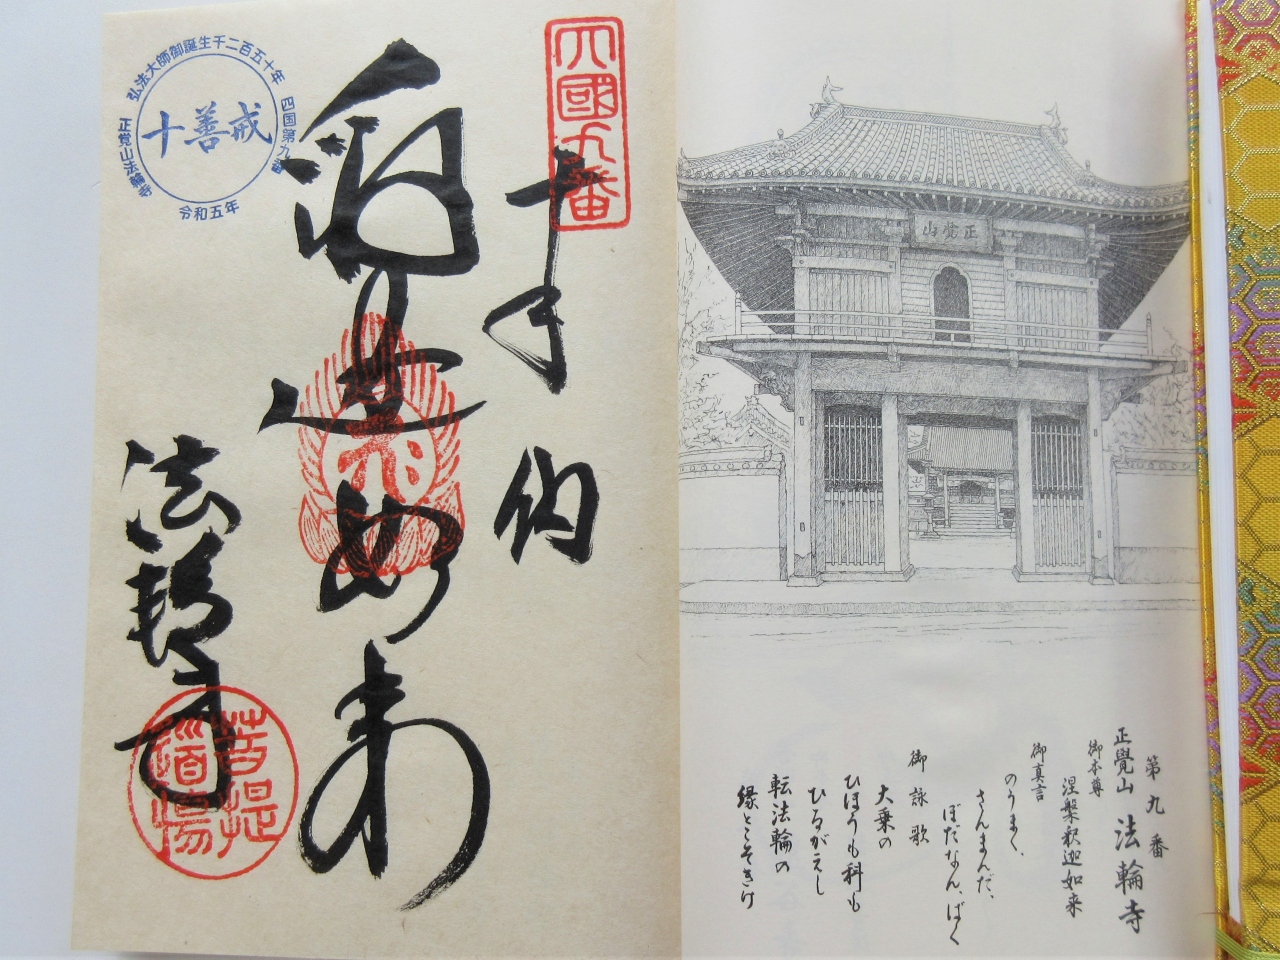 四國九番
奉納
法輪寺
菩提道場
弘法大師御誕生千二百五十年
四国第九番
正覚山法輪寺
令和五年
十善戒
正覺山
第九番
正覺山 法輪寺
御本尊
涅槃釈迦如来
御真言
のうまく、
さんまんだ、
ぼだなん、ばく
御詠歌
大乗の
ひほうも科も
ひるがえし
転法輪の
縁とこそきけ